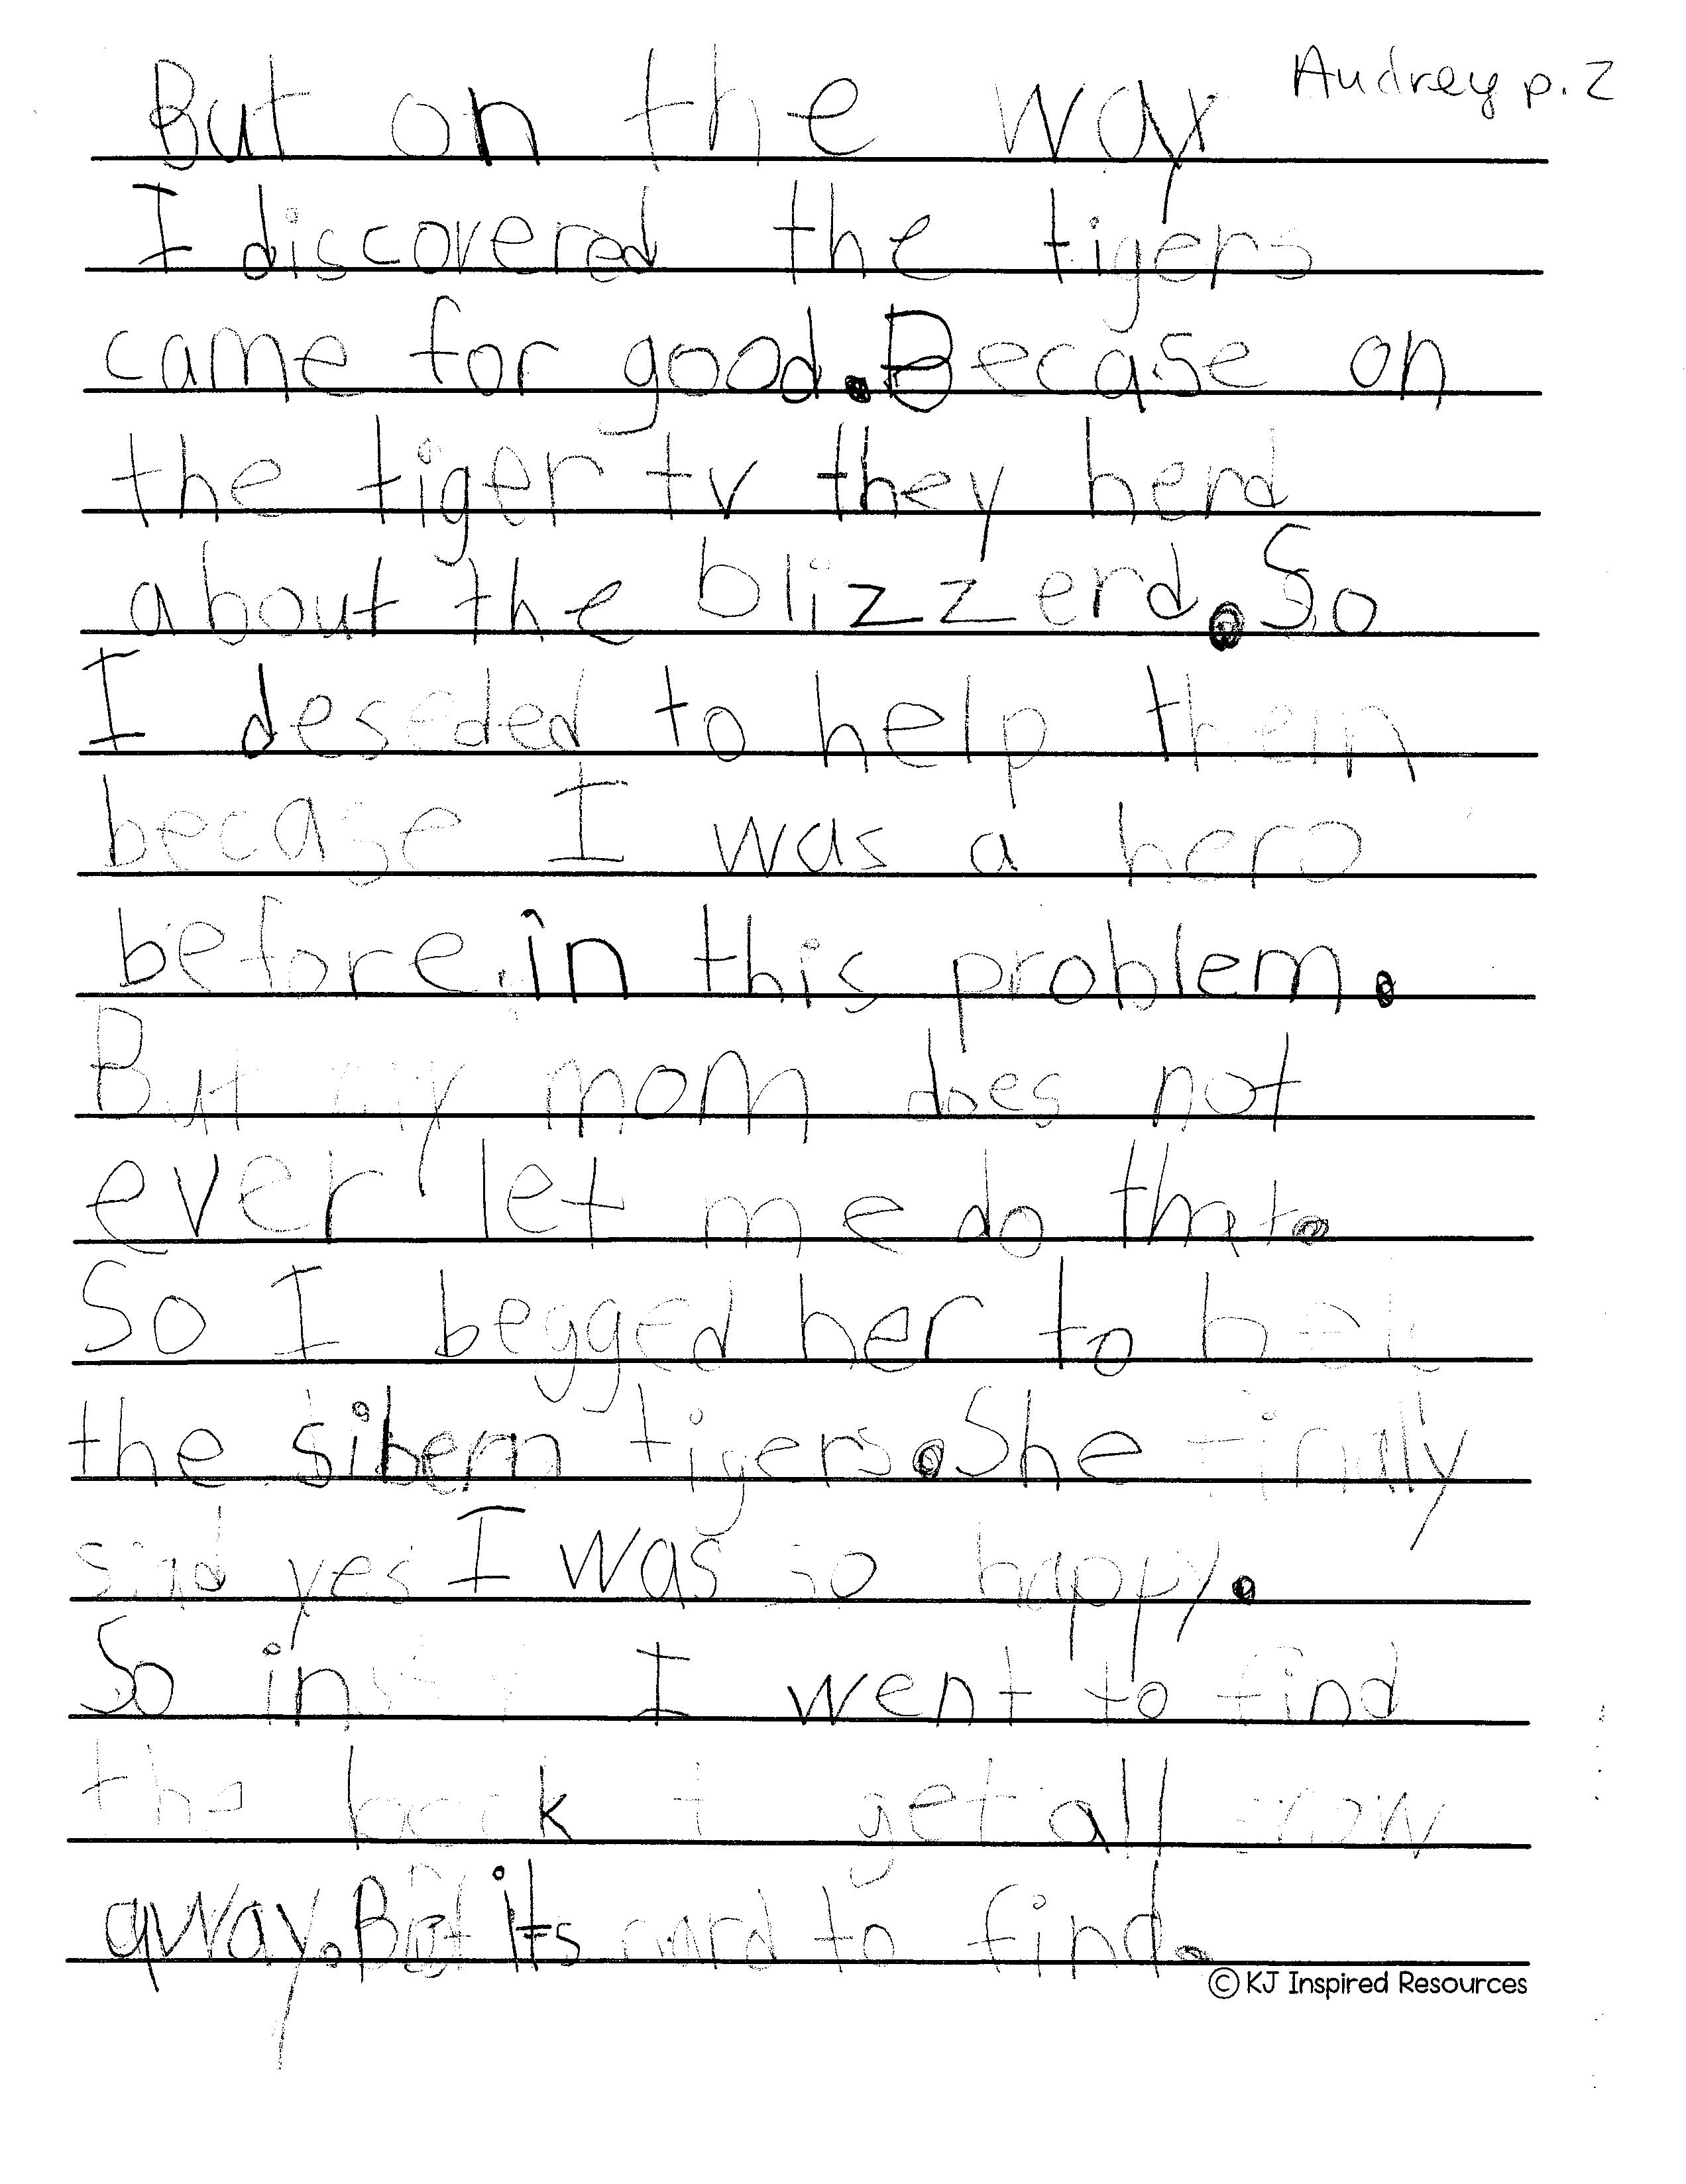 Audrey p. 2
But on the way
I discovered the tigers
came for good. Becase on
the tiger tv they herd
about the blizzerd. So
I deseded to help them
becase I was a hero
before in this problem.
But my mom does not
ever let me do that.
So I begged her to
the sibern tigers. She finally
siad yes I was so happy.
So I went to find
the get all snow
away. But its hard to find.
© KJ Inspired Resources